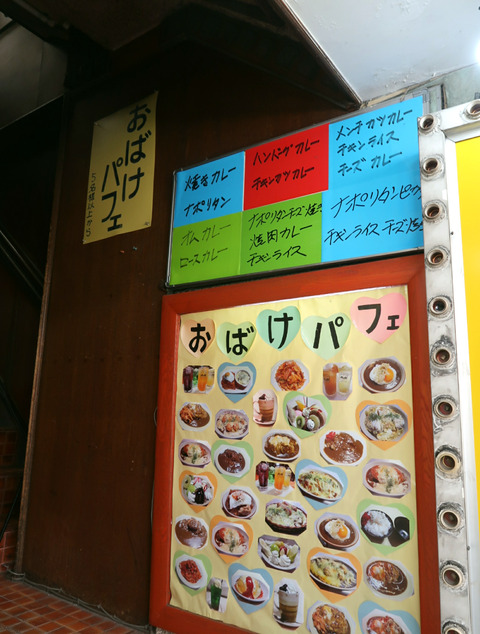 おばけ
パフェ
5名様以上から
焼きカレー
ナポリタン
ハンバーグカレー
チキンカツカレー
メンチカツカレー
チキンライス
チーズカレー
オムカレー
ロースカレー
ナポリタンチーズ焼き
焼肉カレー
チキンライス
ナポリタンピラフ
チキンライス チーズ焼き
おばけパフェ